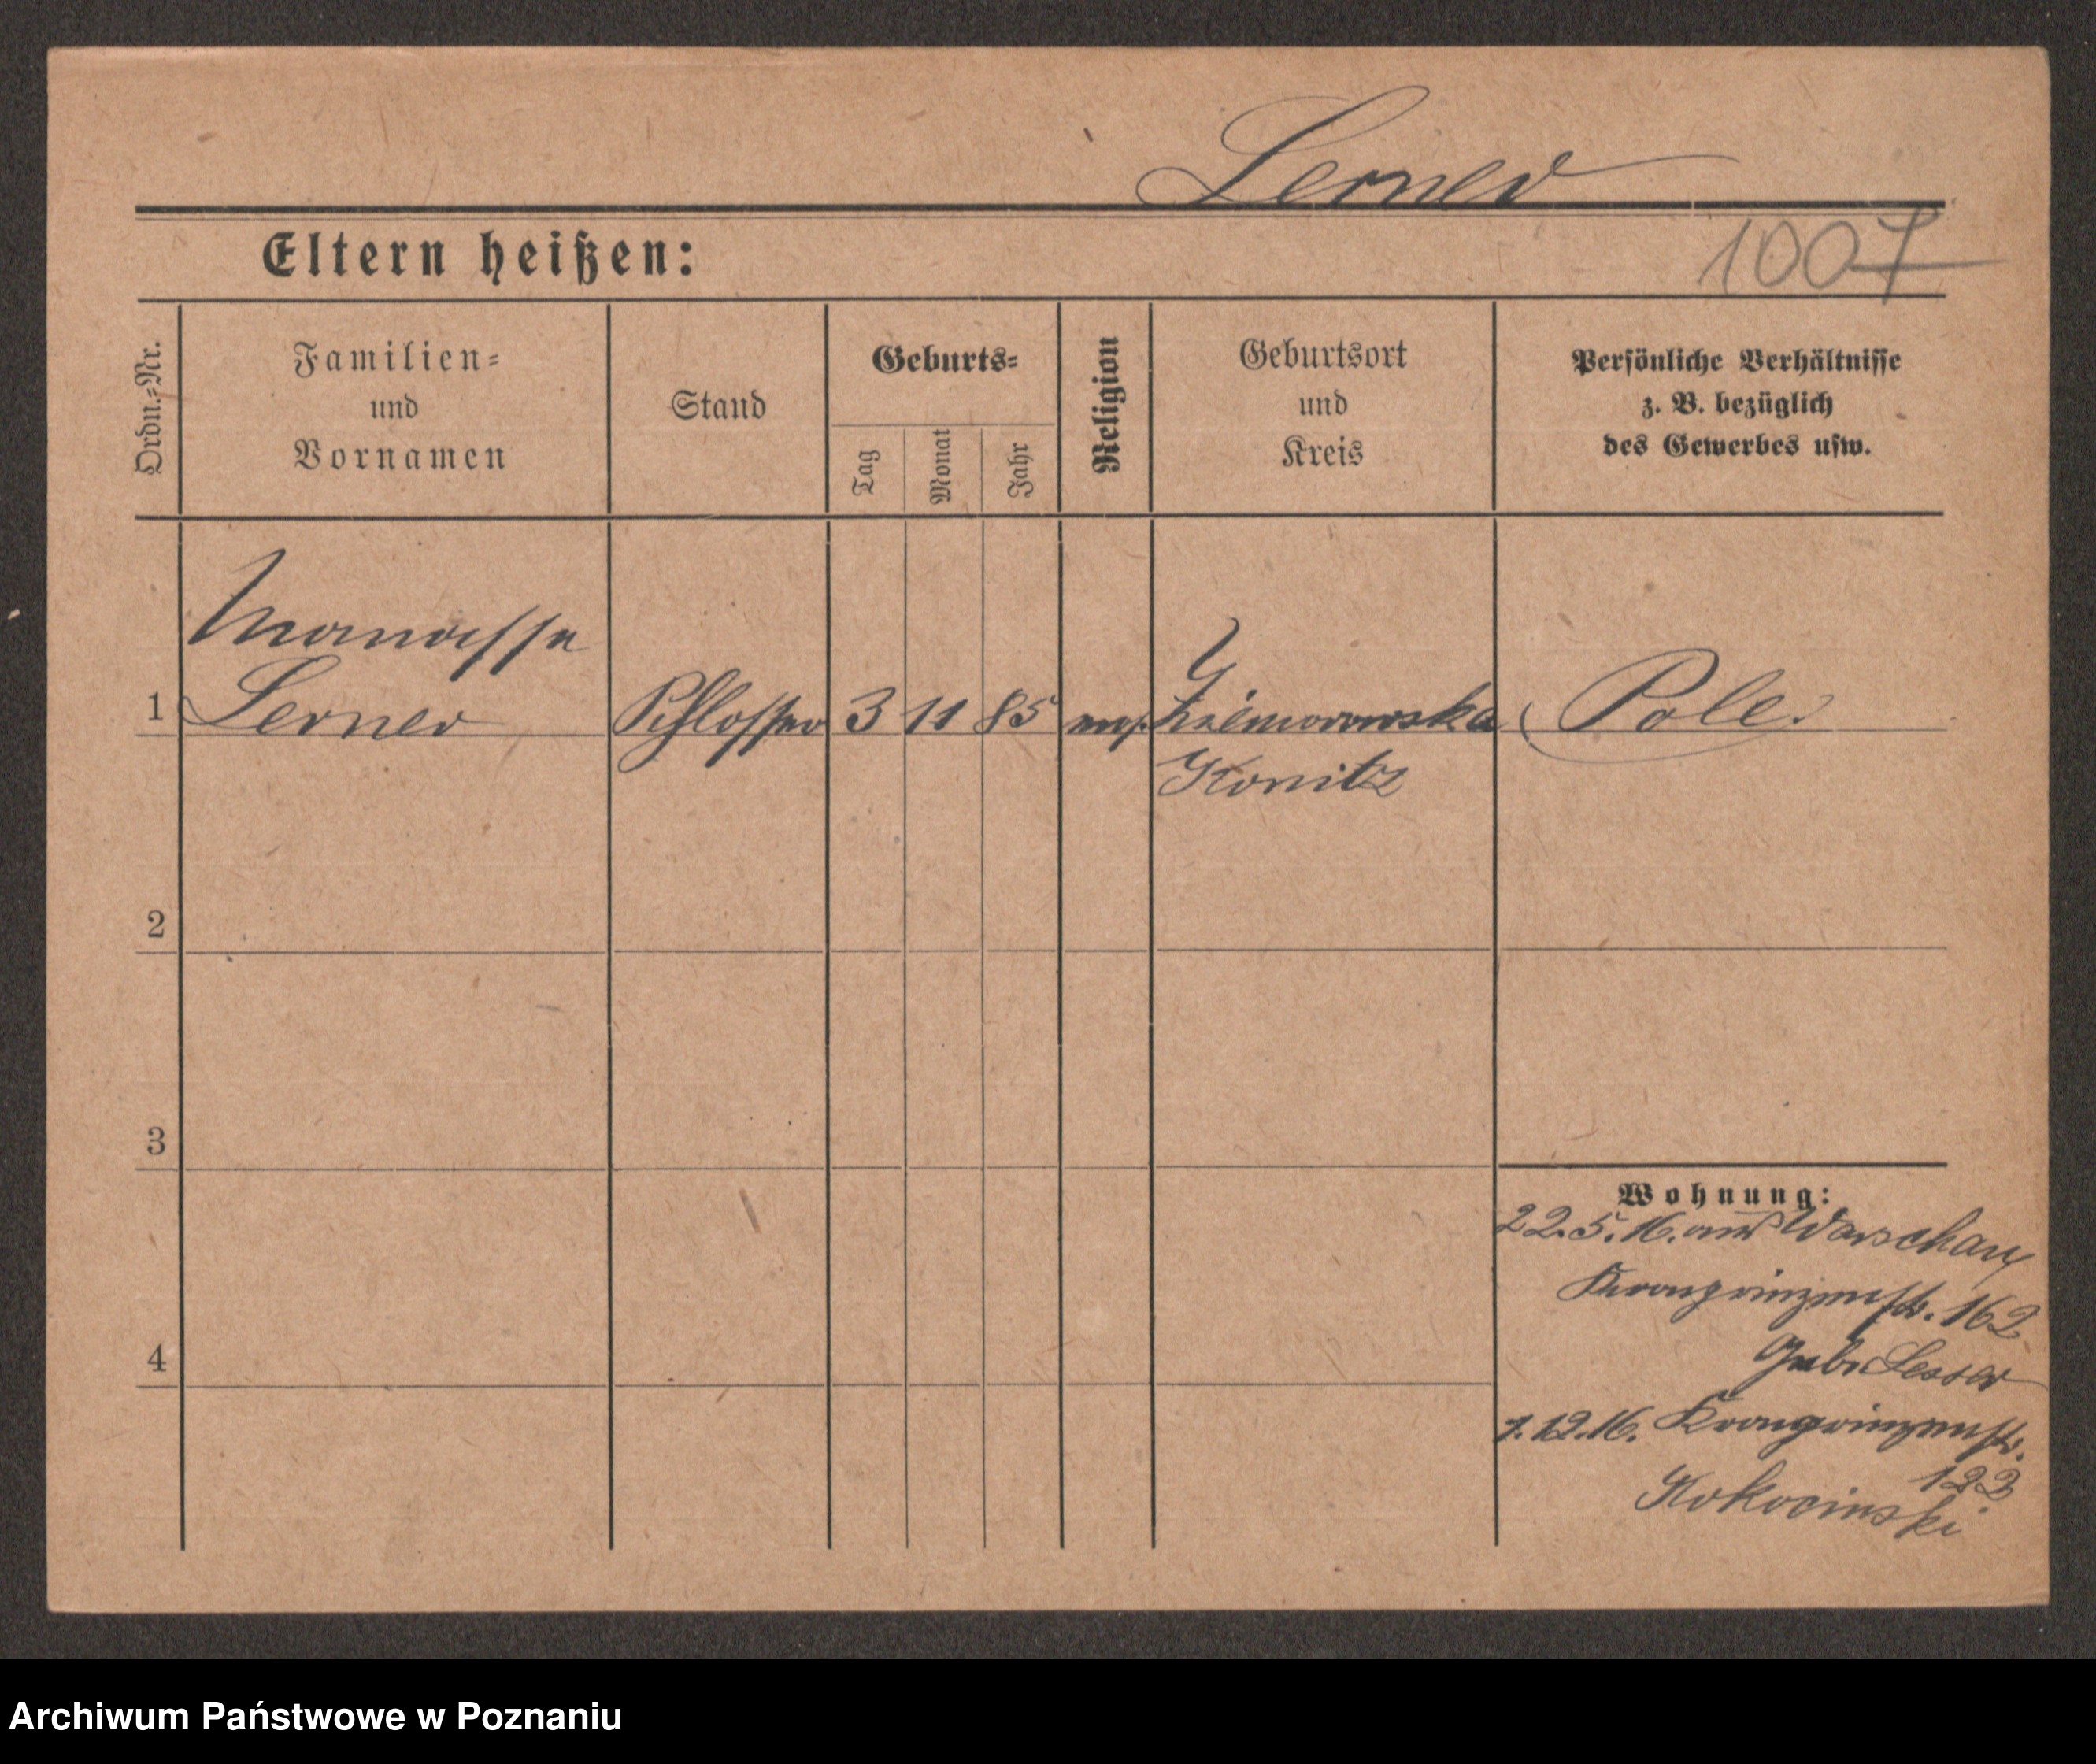 Lerner
Eltern heißen:
1007
Ordn.-Nr.
Familien-
und
Vornamen
Stand
Geburts-
Tag
Monat
Jahr
Religion
Geburtsort
und
Kreis
Persönliche Verhältnisse
z. B. bezüglich
des Gewerbes usw.
Manasse
1 Lerner Schlosser 3 11 85 mos. Pole.
Konitz
2
3
4
Wohnung:
22.5.16. aus Warschau
Kronprinzenstr. 162
Lesser
1.12.16. Kronprinzenstr.
Kokocinski
Archiwum Państwowe w Poznaniu